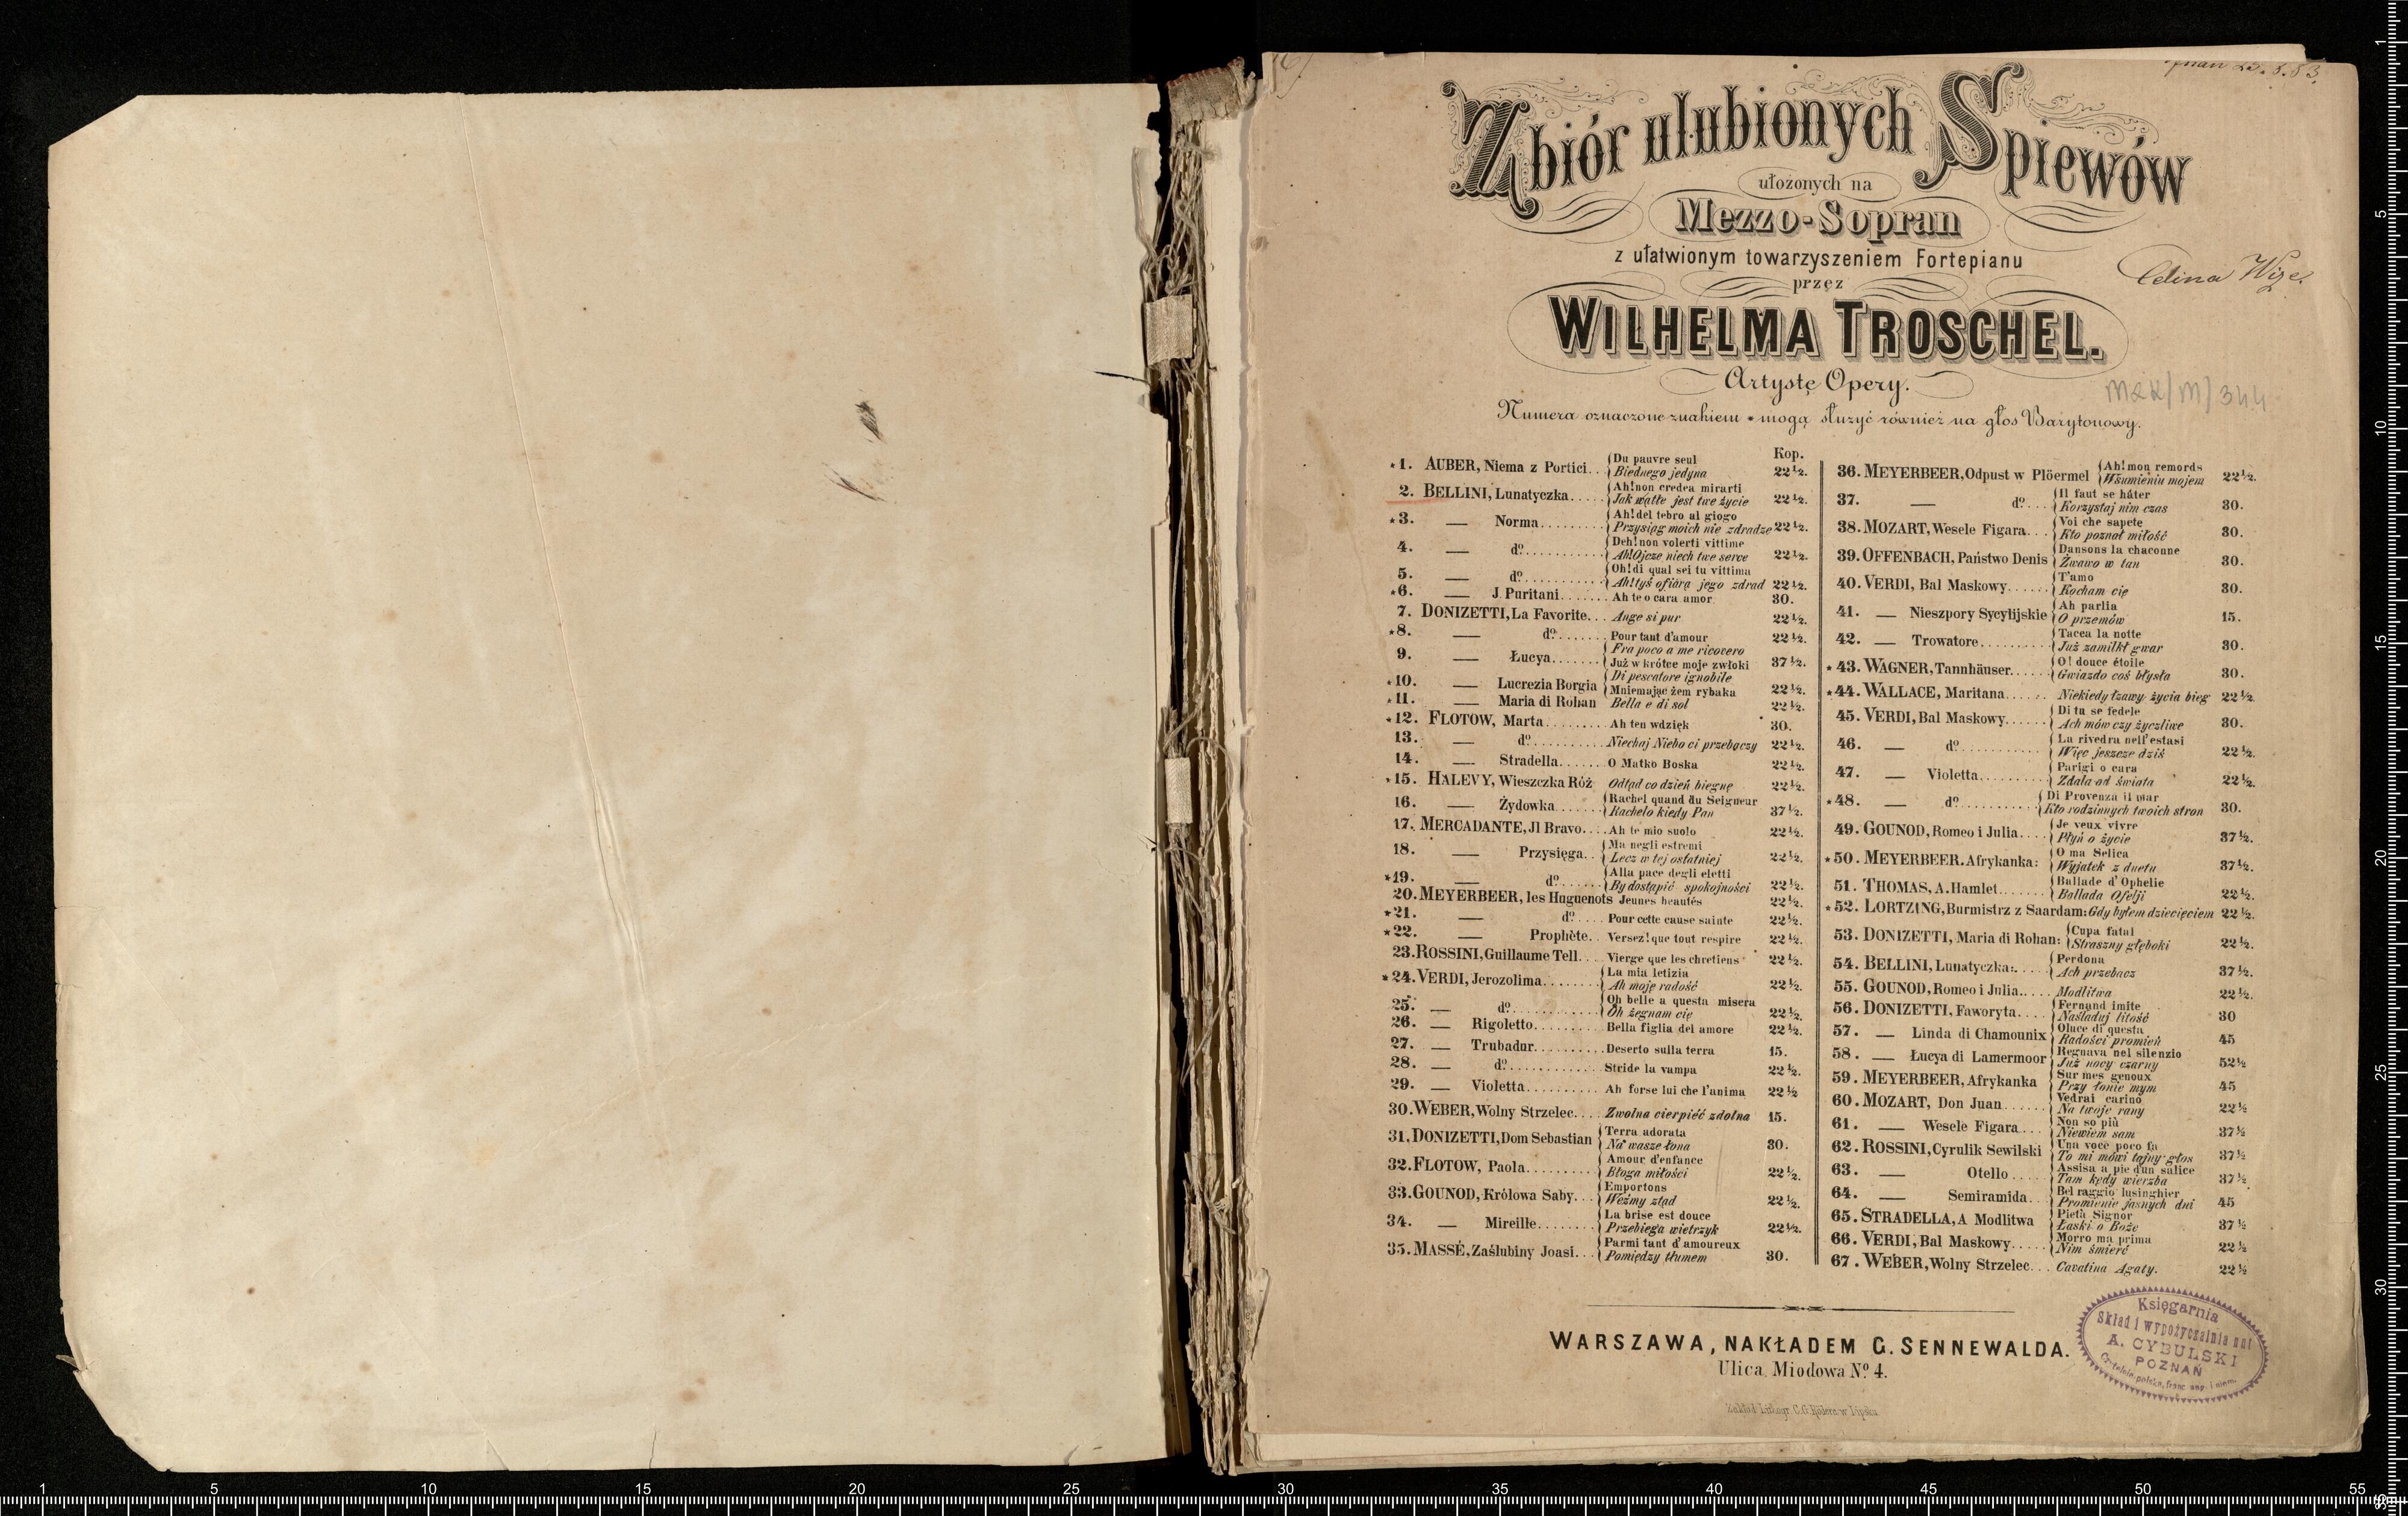 Zbiór ulubionych Śpiewów
ułożonych na
Mezzo-Sopran
z ułatwionym towarzyszeniem Fortepianu
przez
WILHELMA TROSCHEL.
Artystę Opery.
Celina Wize
MRK/M/344
Numera oznaczone znakiem * mogą służyć również na głos Barytonowy.
Kop.
*1. AUBER, Niema z Portici.. {Du pauvre seul
Biednego jedyna 22½.
2. BELLINI, Lunatyczka..... {Ah! non credea mirarti
Jak wątłe jest twe życie 22½.
*3. — Norma......... {Ah! del tebro al giogo
Przysiąg moich nie zdradzę 22½.
4. — do........... {Deh! non volerti vittime
Ah! Ojcze niech twe serce 22½.
5. — do........... {Oh! di qual sei tu vittima
Ah! tyś ofiarą jego zdrad 22½.
*6. — J. Puritani....... Ah te o cara amor 30.
7. DONIZETTI, La Favorite... Ange si pur 22½.
*8. — do....... Pour tant d'amour 22½.
9. — Łucya....... {Fra poco a me ricovero
Już w krótce moje zwłoki 37½.
*10. — Lucrezia Borgia {Di pescatore ignobile
Mniemając żem rybaka 22½.
*11. — Maria di Rohan Bella e di sol 22½.
*12. FLOTOW, Marta......... Ah ten wdzięk 30.
13. — do........... Niechaj Nieba ci przebaczy 22½.
14. — Stradella....... O Matko Boska 22½.
*15. HALEVY, Wieszczka Róż Odtąd co dzień biegnę 22½.
16. — Żydowka....... {Rachel quand du Seigneur
Rachelo kiedy Pan 37½.
17. MERCADANTE, Jl Bravo.... Ah te mio suolo 22½.
18. — Przysięga.. {Ma negli estremi
Lecz w tej ostatniej 22½.
*19. — do....... {Alla pace degli eletti
By dostąpić spokojności 22½.
20. MEYERBEER, les Huguenots Jeunes beautés 22½.
*21. — do.... Pour cette cause sainte 22½.
*22. — Prophète.. Versez! que tout respire 22½.
23. ROSSINI, Guillaume Tell.... Vierge que les chretiens 22½.
*24. VERDI, Jerozolima........ {La mia letizia
Ah moję radość 22½.
25. — do............ {Oh belle a questa misera
Oh żegnam cię 22½.
26. — Rigoletto.......... Bella figlia del amore 22½.
27. — Trubadur.......... Deserto sulla terra 15.
28. — do............ Stride la vampa 22½.
29. — Violetta.......... Ah forse lui che l'anima 22½
30. WEBER, Wolny Strzelec.... Zwolna cierpiéć zdolna 15.
31. DONIZETTI, Dom Sebastian {Terra adorata
Na wasze łona 30.
32. FLOTOW, Paola.......... {Amour d'enfance
Błoga miłości 22½.
33. GOUNOD, Królowa Saby... {Emportons
Weźmy ztąd 22½.
34. — Mireille........ {La brise est douce
Przebiega wietrzyk 22½.
35. MASSÉ, Zaślubiny Joasi... {Parmi tant d'amoureux
Pomiędzy tłumem 30.
36. MEYERBEER, Odpust w Plöermel {Ah! mon remords
W sumieniu mojem 22½.
37. — do.... {Il faut se hâter
Korzystaj nim czas 30.
38. MOZART, Wesele Figara... {Voi che sapete
Kto poznał miłość 30.
39. OFFENBACH, Państwo Denis {Dansons la chaconne
Żwawo w tan 30.
40. VERDI, Bal Maskowy...... {T'amo
Kocham cię 30.
41. — Nieszpory Sycylijskie {Ah parlia
O przemów 15.
42. — Trowatore.......... {Tacea la notte
Już zamilkł gwar 30.
*43. WAGNER, Tannhäuser...... {O! douce étoile
Gwiazdo coś błysła 30.
*44. WALLACE, Maritana...... Niekiedy łzawy życia bieg 22½.
45. VERDI, Bal Maskowy...... {Di tu se fedele
Ach mów czy życzliwe 30.
46. — do............ {La rivedra nell'estasi
Więc jeszcze dziś 22½.
47. — Violetta.......... {Parigi o cara
Zdala od świata 22½.
*48. — do........... {Di Provenza il mar
Kto rodzinnych twoich stron 30.
49. GOUNOD, Romeo i Julia.... {Je veux vivre
Płyń o życie 37½.
*50. MEYERBEER. Afrykanka: {O ma Selica
Wyjątek z duetu 37½.
51. THOMAS, A. Hamlet....... {Ballade d'Ophelie
Ballada Ofelji 22½.
*52. LORTZING, Burmistrz z Saardam: Gdy byłem dziecięciem 22½.
53. DONIZETTI, Maria di Rohan: {Cupa fatal
Straszny głęboki 22½.
54. BELLINI, Lunatyczka:..... {Perdona
Ach przebacz 37½.
55. GOUNOD, Romeo i Julia..... Modlitwa 22½.
56. DONIZETTI, Faworyta..... {Fernand imite
Naśladuj litość 30
57. — Linda di Chamounix {Oluce di questa
Radości promień 45
58. — Łucya di Lamermoor {Regnava nel silenzio
Już nocy czarny 52½
59. MEYERBEER, Afrykanka {Sur mes genoux
Przy łonie mym 45
60. MOZART, Don Juan...... {Vedrai carino
Na twoje rany 22½
61. — Wesele Figara... {Non so più
Niewiem sam 37½
62. ROSSINI, Cyrulik Sewilski {Una voce poco fa
To mi mówi tajny głos 37½
63. — Otello.... {Assisa a pie d'un salice
Tam kędy wierzba 37½
64. — Semiramida.. {Bel raggio lusinghier
Promienie jasnych dni 45
65. STRADELLA, A Modlitwa {Pieta Signor
Łaski o Boże 37½
66. VERDI, Bal Maskowy..... {Morro ma prima
Nim śmierć 22½
67. WEBER, Wolny Strzelec... Cavatina Agaty. 22½
WARSZAWA, NAKŁADEM G. SENNEWALDA.
Ulica Miodowa No. 4.
Zakład Litogr. C.G. Rödera w Lipsku
Księgarnia
Skład i wypożyczalnia nut
A. CYBULSKI
POZNAŃ
Czytelnia polska, franc. ang. i niem.